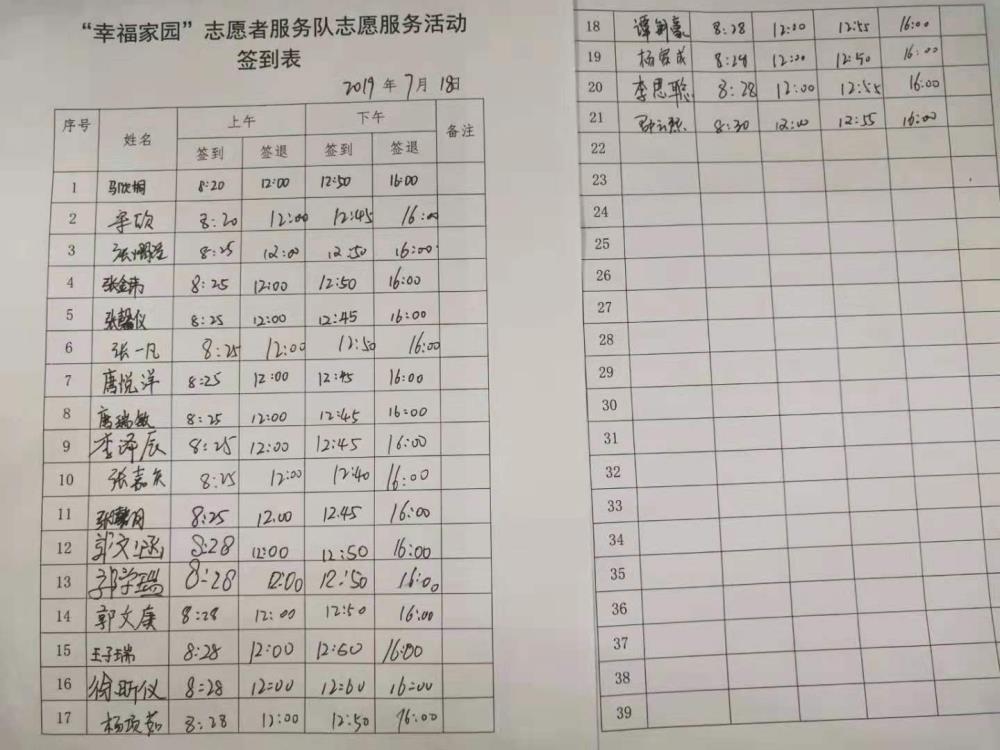 “幸福家园”志愿者服务队志愿服务活动
签到表
2019 年 7 月 18日
序号 姓名 上午 下午 备注
签到 签退 签到 签退
1 8:20 12:00 12:50 16:00
2 8:20 12:00 12:45 16:00
3 8:25 12:00 12:50 16:00
4 张金玮 8:25 12:00 12:50 16:00
5 张馨仪 8:25 12:00 12:45 16:00
6 张一凡 8:25 12:00 12:50 16:00
7 唐悦洋 8:25 12:00 12:45 16:00
8 唐瑞敏 8:25 12:00 12:45 16:00
9 李泽辰 8:25 12:00 12:45 16:00
10 张嘉 8:25 12:00 12:40 16:00
11 张馨月 8:25 12.00 12.45 16:00
12 郭文涵 8:28 12:00 12:50 16:00
13 郭学瑞 8:28 12:00 12:50 16:00
14 郭文康 8:28 12:00 12:50 16:00
15 王子瑞 8:28 12:00 12:60 16:00
16 徐昕仪 8:28 12:00 12:60 16:00
17 杨茹 8:28 12:00 12:50 16:00
18 谭豪 8:28 12:00 12:55 16:00
19 杨成 8:28 12:00 12:50 16:00
20 李思聪 8:28 12:00 12:55 16:00
21 8:30 12:00 12:55 16:00
22
23
24
25
26
27
28
29
30
31
32
33
34
35
36
37
38
39